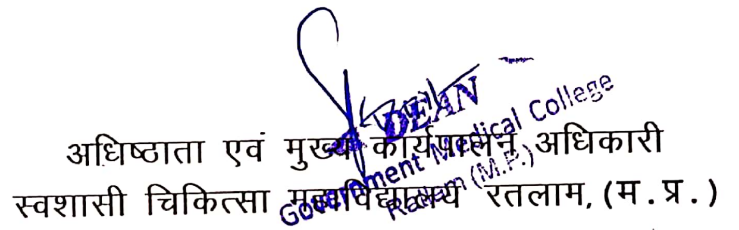 DEAN
Government Medical College
Ratlam (M.P.)
अधिष्ठाता एवं मुख्य कार्यपालन अधिकारी
स्वशासी चिकित्सा महाविद्यालय रतलाम, (म.प्र.)